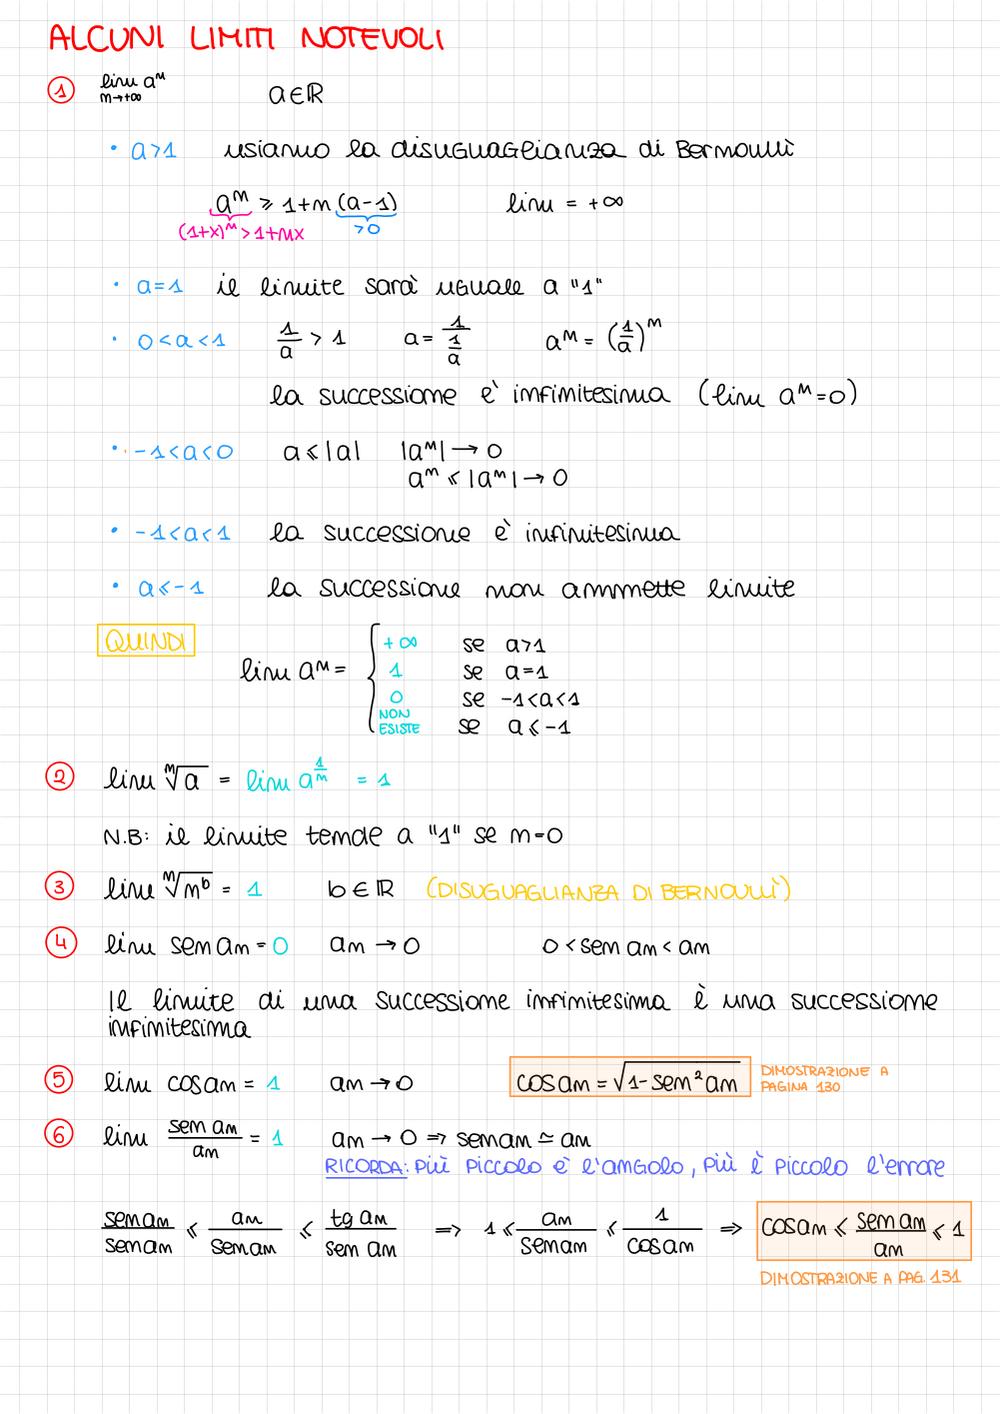 ALCUNI LIMITI NOTEVOLI
① lim aⁿ a∈ℝ
n→+∞
• a>1 usiamo la disuguaglianza di Bernoulli
aⁿ ≥ 1+n(a-1) lim = +∞
(1+x)ⁿ>1+nx >0
• a=1 il limite sarà uguale a "1"
• 0<a<1 1/a > 1 a = 1/(1/a) aⁿ = (1/a)ⁿ
la successione è infinitesima (lim aⁿ=0)
• -1<a<0 a≤|a| |aⁿ| → 0
aⁿ ≤ |aⁿ| → 0
• -1<a<1 la successione è infinitesima
• a≤-1 la successione non ammette limite
QUINDI
lim aⁿ = { +∞ se a>1
1 se a=1
0 se -1<a<1
NON ESISTE se a≤-1
② lim ⁿ√a = lim a^(1/n) = 1
N.B: il limite tende a "1" se n=0
③ lim ⁿ√nᵇ = 1 b∈ℝ (DISUGUAGLIANZA DI BERNOULLI)
④ lim sen an = 0 an → 0 0 < sen an < an
Il limite di una successione infinitesima è una successione
infinitesima
⑤ lim cos an = 1 an → 0 cos an = √(1-sen² an) DIMOSTRAZIONE A
PAGINA 130
⑥ lim sen an/an = 1 an → 0 ⇒ sen an ≃ an
RICORDA: più piccolo è l'angolo, più è piccolo l'errore
sen an/sen an ≤ an/sen an ≤ tg an/sen an ⇒ 1 ≤ an/sen an ≤ 1/cos an ⇒ cos an ≤ sen an/an ≤ 1
DIMOSTRAZIONE A PAG. 131